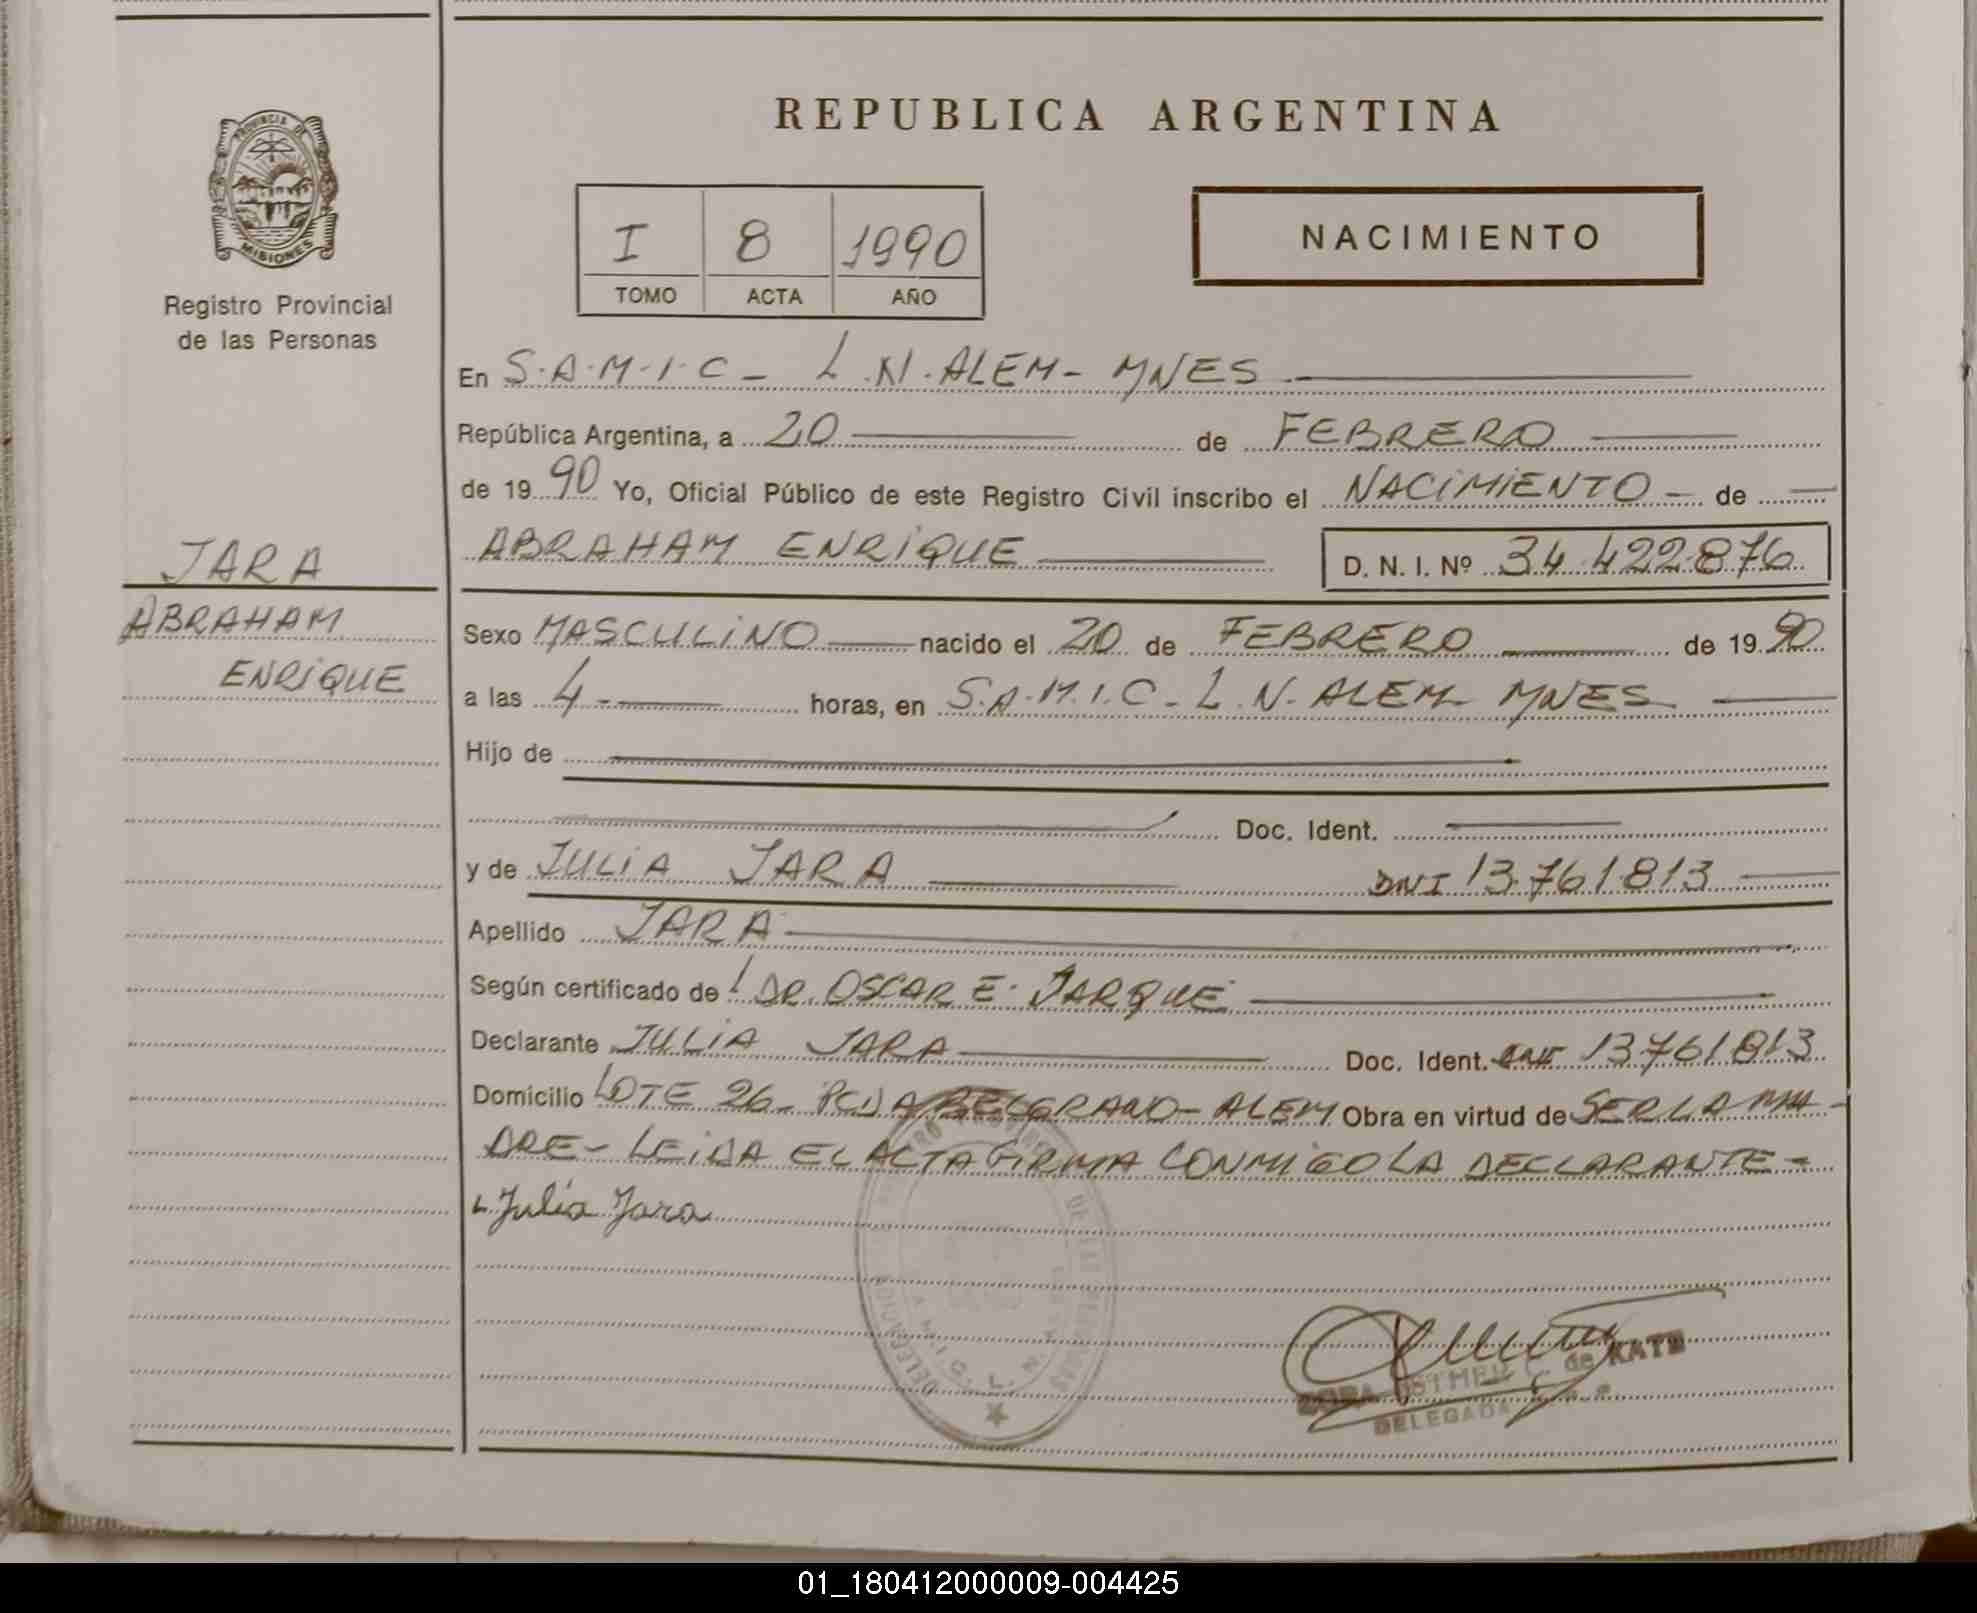 REPUBLICA ARGENTINA
PROVINCIA DE
MISIONES
Registro Provincial
de las Personas
I 8 1990
TOMO ACTA AÑO
NACIMIENTO
En S.A.M.I.C - L.N. ALEM - MNES
República Argentina, a 20 de FEBRERO
de 1990 Yo, Oficial Público de este Registro Civil inscribo el NACIMIENTO - de
ABRAHAM ENRIQUE D. N. I. Nº 34.422.876
JARA
ABRAHAM
ENRIQUE
Sexo MASCULINO nacido el 20 de FEBRERO de 1990
a las 4 - horas, en S.A.M.I.C - L.N. ALEM MNES
Hijo de
Doc. Ident.
y de JULIA JARA DNI 13.761.813
Apellido JARA
Según certificado de l DR. OSCAR E. JARQUE
Declarante JULIA JARA Doc. Ident. DNI 13.761.813
Domicilio LOTE 26 - PCIA BELGRANO - ALEM Obra en virtud de SER LA MA-
DRE - LEIDA EL ACTA FIRMA CONMIGO LA DECLARANTE -
Julia Jara
DELEGACION
L. N.
de KATZ
DELEGADA
01_180412000009-004425